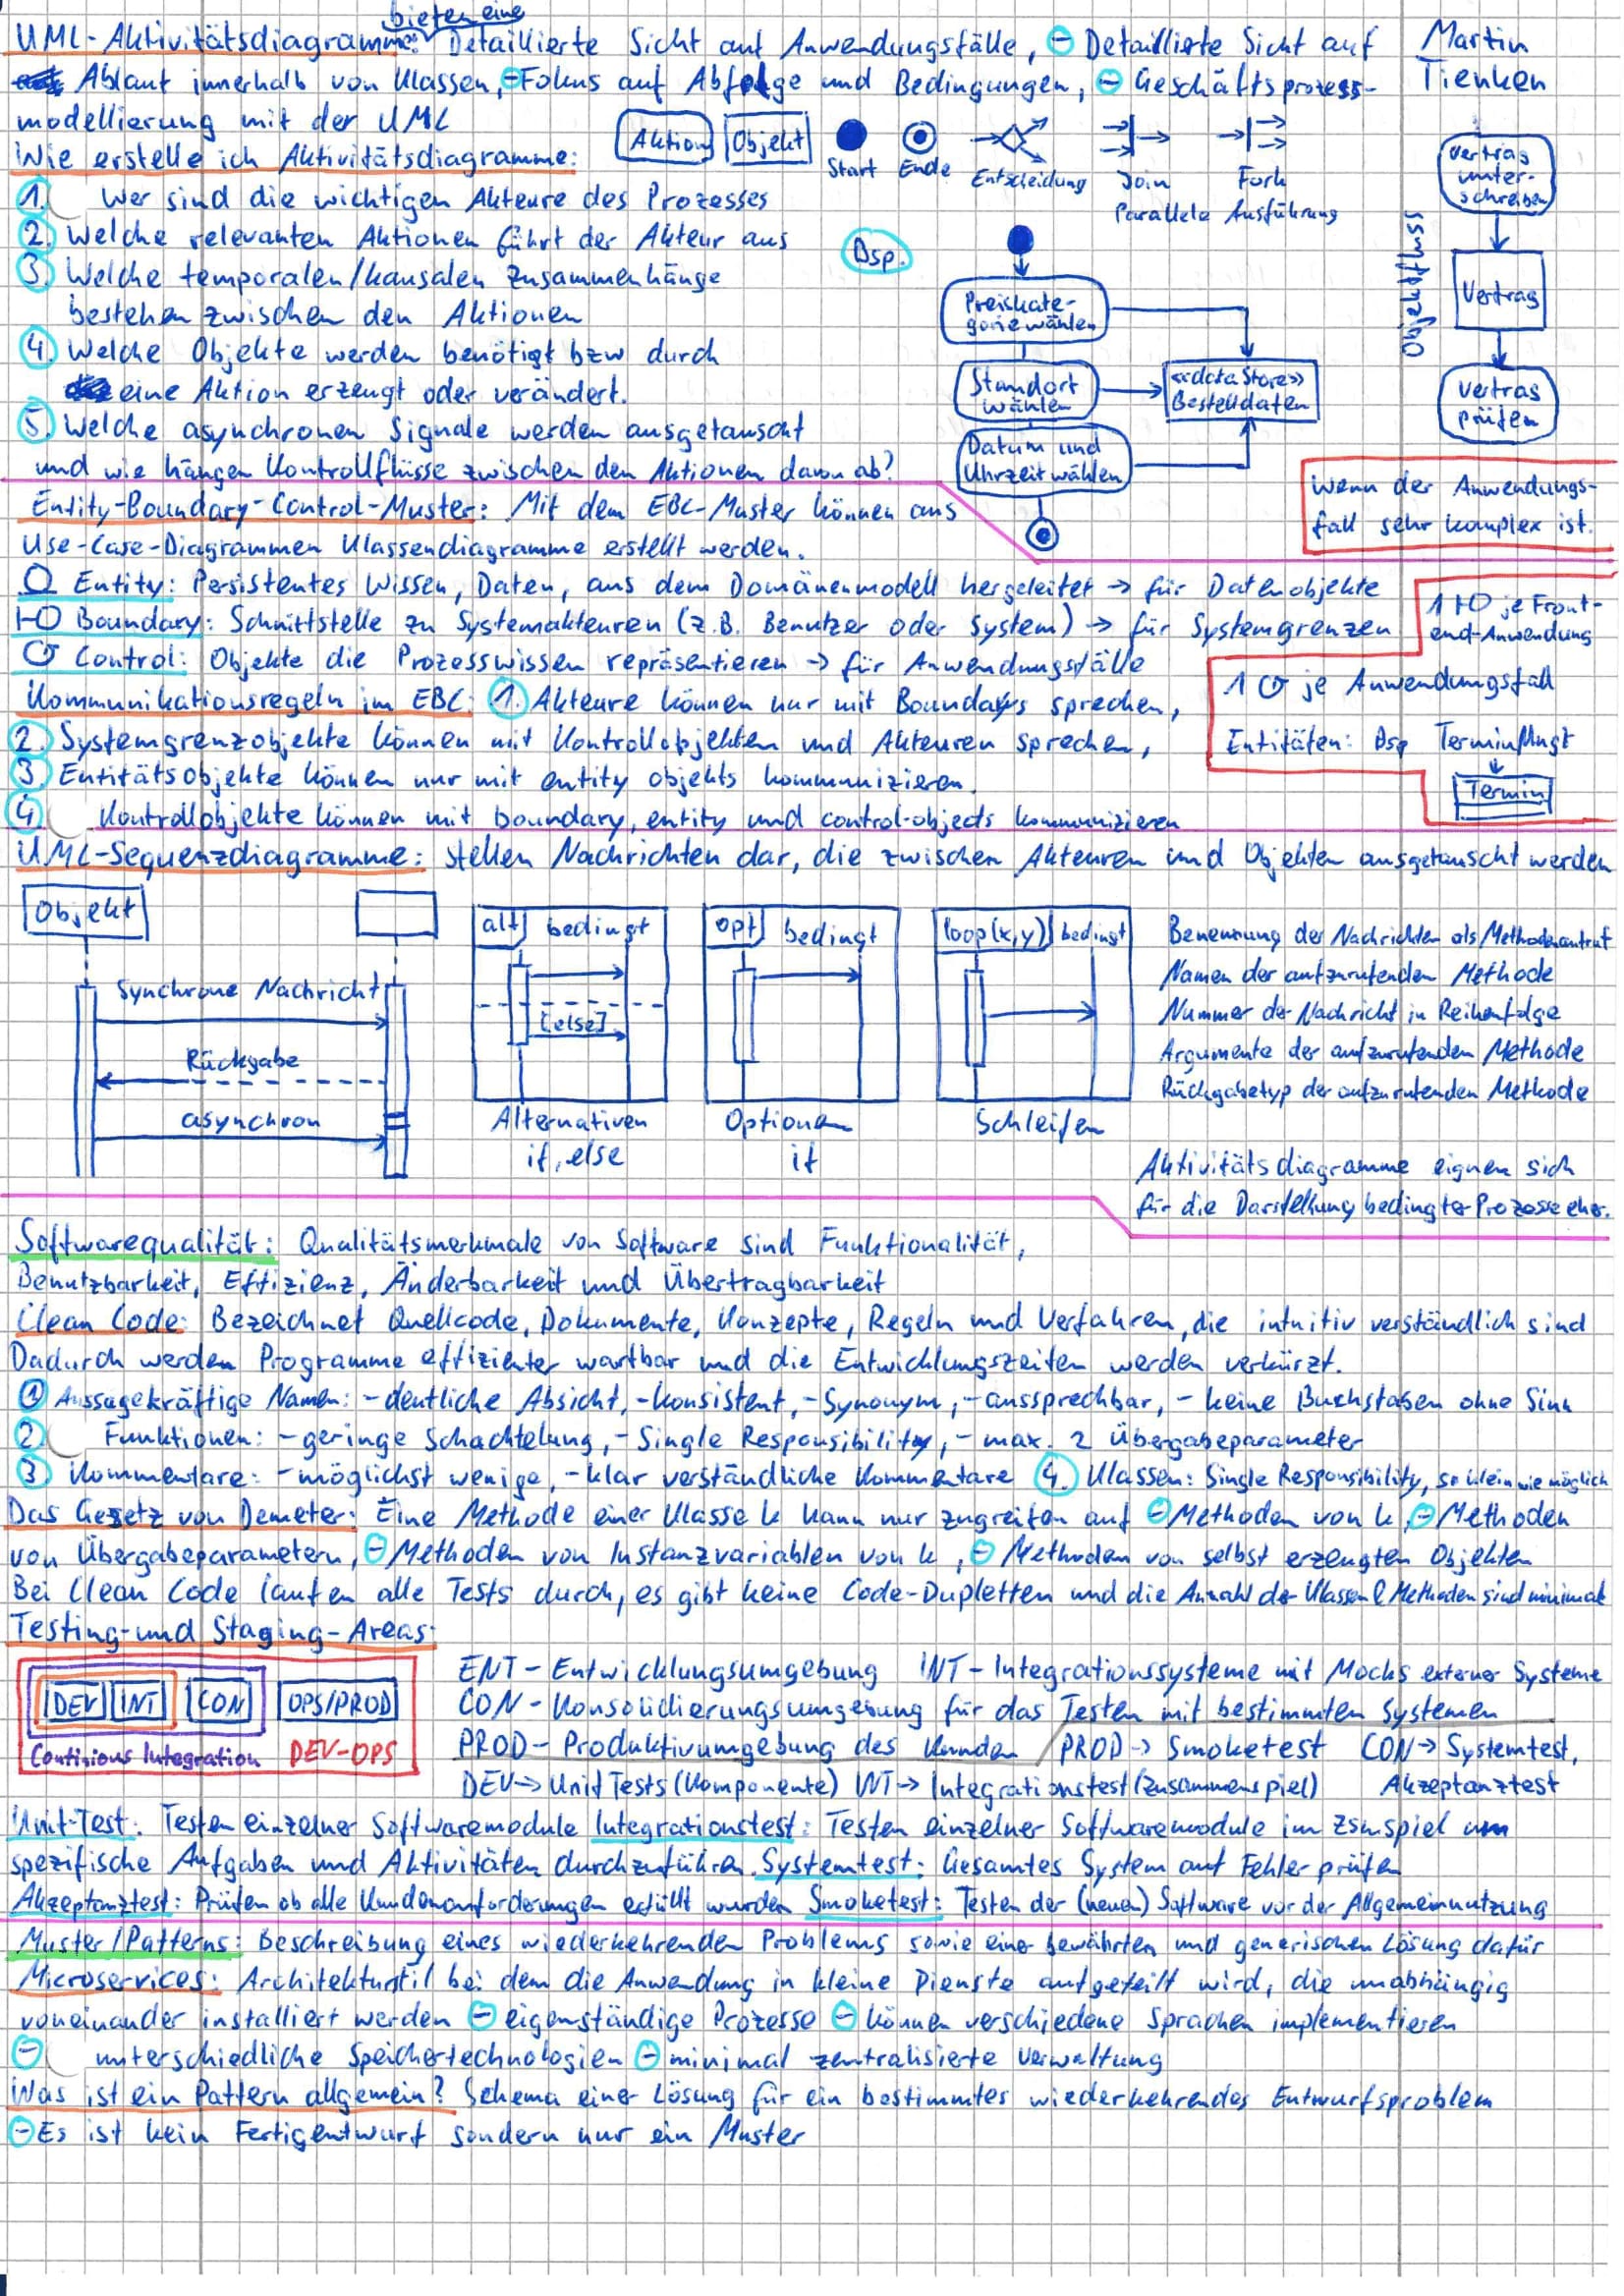 bieten eine
UML-Aktivitätsdiagramme: Detaillierte Sicht auf Anwendungsfälle, - Detaillierte Sicht auf
Martin
Tienken
Ablauf innerhalb von Klassen, - Fokus auf Abfolge und Bedingungen, - Geschäftsprozess-
modellierung mit der UML
Aktion
Objekt
Start
Ende
Entscheidung
Join
Fork
Parallele Ausführung
Wie erstelle ich Aktivitätsdiagramme:
1. Wer sind die wichtigen Akteure des Prozesses
2. Welche relevanten Aktionen führt der Akteur aus
3. Welche temporalen/kausalen Zusammenhänge
bestehen zwischen den Aktionen
4. Welche Objekte werden benötigt bzw durch
eine Aktion erzeugt oder verändert.
5. Welche asynchronen Signale werden ausgetauscht
und wie hängen Kontrollflüsse zwischen den Aktionen davon ab?
Bsp.
Preiskate-
gorie wählen
Standort
wählen
Datum und
Uhrzeit wählen
«dataStore»
Bestelldaten
Objektfluss
Vertrag
unter-
schreiben
Vertrag
Vertrag
prüfen
wenn der Anwendungs-
fall sehr komplex ist.
Entity-Boundary-Control-Muster: Mit dem EBC-Muster können aus
Use-Case-Diagrammen Klassendiagramme erstellt werden.
Entity: Persistentes Wissen, Daten, aus dem Domänenmodell hergeleitet → für Datenobjekte
Boundary: Schnittstelle zu Systemakteuren (z.B. Benutzer oder System) → für Systemgrenzen
Control: Objekte die Prozesswissen repräsentieren → für Anwendungsfälle
1 je Front-
end-Anwendung
1 je Anwendungsfall
Entitäten: Bsp Terminfängt
Termin
Kommunikationsregeln im EBC: 1. Akteure können nur mit Boundarys sprechen,
2. Systemgrenzobjekte können mit Kontrollobjekten und Akteuren sprechen,
3. Entitätsobjekte können nur mit entity objekts kommunizieren.
4. Kontrollobjekte können mit boundary, entity und control-objects kommunizieren
UML-Sequenzdiagramme: stellen Nachrichten dar, die zwischen Akteuren und Objekten ausgetauscht werden
Objekt
Synchrone Nachricht
Rückgabe
asynchron
alt bedingt
[else]
Alternativen
if, else
opt bedingt
Optionen
if
loop(x,y) bedingt
Schleifen
Benennung der Nachrichten als Methodenaufruf
Namen der aufzurufenden Methode
Nummer der Nachricht in Reihenfolge
Argumente der aufzurufenden Methode
Rückgabetyp der aufzurufenden Methode
Aktivitätsdiagramme eignen sich
für die Darstellung bedingter Prozesse eher.
Softwarequalität: Qualitätsmerkmale von Software sind Funktionalität,
Benutzbarkeit, Effizienz, Änderbarkeit und Übertragbarkeit
Clean Code: Bezeichnet Quellcode, Dokumente, Konzepte, Regeln und Verfahren, die intuitiv verständlich sind
Dadurch werden Programme effizienter wartbar und die Entwicklungszeiten werden verkürzt.
1 Aussagekräftige Namen: - deutliche Absicht, - konsistent, - Synonym, - aussprechbar, - keine Buchstaben ohne Sinn
2. Funktionen: - geringe Schachtelung, - Single Responsibility, - max. 2 Übergabeparameter
3 Kommentare: - möglichst wenige, - klar verständliche Kommentare 4. Klassen: Single Responsibility, so klein wie möglich
Das Gesetz von Demeter: Eine Methode einer Klasse k kann nur zugreifen auf - Methoden von k, - Methoden
von Übergabeparametern, - Methoden von Instanzvariablen von k, - Methoden von selbst erzeugten Objekten
Bei Clean Code laufen alle Tests durch, es gibt keine Code-Dupletten und die Anzahl der Klassen & Methoden sind minimal
Testing- und Staging-Areas:
DEV INT CON OPS/PROD
Continious Integration DEV-OPS
ENT - Entwicklungsumgebung INT - Integrationssysteme mit Mocks externer Systeme
CON - Konsolidierungsumgebung für das Testen mit bestimmten Systemen
PROD - Produktivumgebung des Kunden / PROD → Smoketest CON → Systemtest,
DEV → Unit Tests (Komponente) INT → Integrationstest (Zusammenspiel) Akzeptanztest
Unit-Test: Testen einzelner Softwaremodule Integrationstest: Testen einzelner Softwaremodule im Zsmspiel um
spezifische Aufgaben und Aktivitäten durchzuführen. Systemtest: Gesamtes System auf Fehler prüfen
Akzeptanztest: Prüfen ob alle Kundenanforderungen erfüllt wurden Smoketest: Testen der (neuen) Software vor der Allgemeinnutzung
Muster/Patterns: Beschreibung eines wiederkehrenden Problems sowie einer bewährten und generischen Lösung dafür
Microservices: Architekturstil bei dem die Anwendung in kleine Dienste aufgeteilt wird, die unabhängig
voneinander installiert werden - eigenständige Prozesse - können verschiedene Sprachen implementieren
- unterschiedliche Speichertechnologien - minimal zentralisierte Verwaltung
Was ist ein Pattern allgemein? Schema einer Lösung für ein bestimmtes wiederkehrendes Entwurfsproblem
- Es ist kein Fertigentwurf sondern nur ein Muster